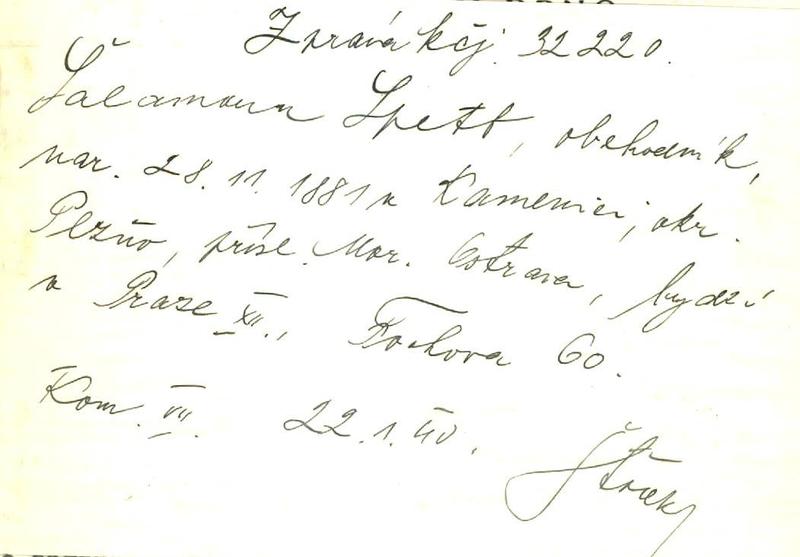 Zpráva k čj. 32220.
Šalamoun Spett, obchodník,
nar. 28. 11. 1881 v Kamenici, okr.
Plzňo, přísl. Mor. Ostrava, bydží
v Praze XII., Fochova 60.
Kom. VII. 22. 1. 40.